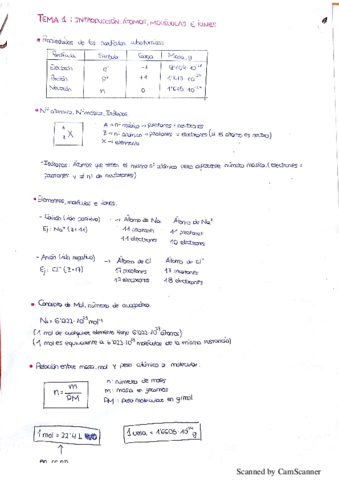 TEMA 1: INTRODUCCIÓN. ÁTOMOS, MOLÉCULAS E IONES
1
• Propiedades de las partículas subatómicas
Partícula Símbolo Carga Masa, g
Electrón e⁻ -1
Protón p⁺ +1
Neutrón n 0
• Nº atómico, Nº másico, Isótopos
A = nº másico → protones + neutrones
A
Z X
Z = nº atómico → protones = electrones (si el átomo es neutro)
X = elemento
*Isótopos: Átomos que tienen el mismo nº atómico pero diferente número másico (electrones =
protones y ≠ nº de neutrones)
• Elementos, moléculas e iones.
- Catión (ión positivo) → Átomo de Na Átomo de Na⁺
Ej: Na⁺ (Z=11) 11 protones 11 protones
11 electrones 10 electrones
- Anión (ión negativo) → Átomo de Cl Átomo de Cl⁻
Ej: Cl⁻ (Z=17) 17 protones 17 protones
17 electrones 18 electrones
• Concepto de Mol, número de avogadro.
Na = 6'022·10²³ mol⁻¹
(1 mol de cualquier elemento tiene 6'022·10²³ átomos)
(1 mol es equivalente a 6'022·10²³ moléculas de la misma sustancia)
• Relación entre masa, mol y peso atómico o molecular.
n = m / PM
n: número de moles
m: masa en gramos
PM: peso molecular en g/mol
1 mol = 22'4 L
1 uma = 1'6605·10⁻²⁴ g
en
Scanned by CamScanner